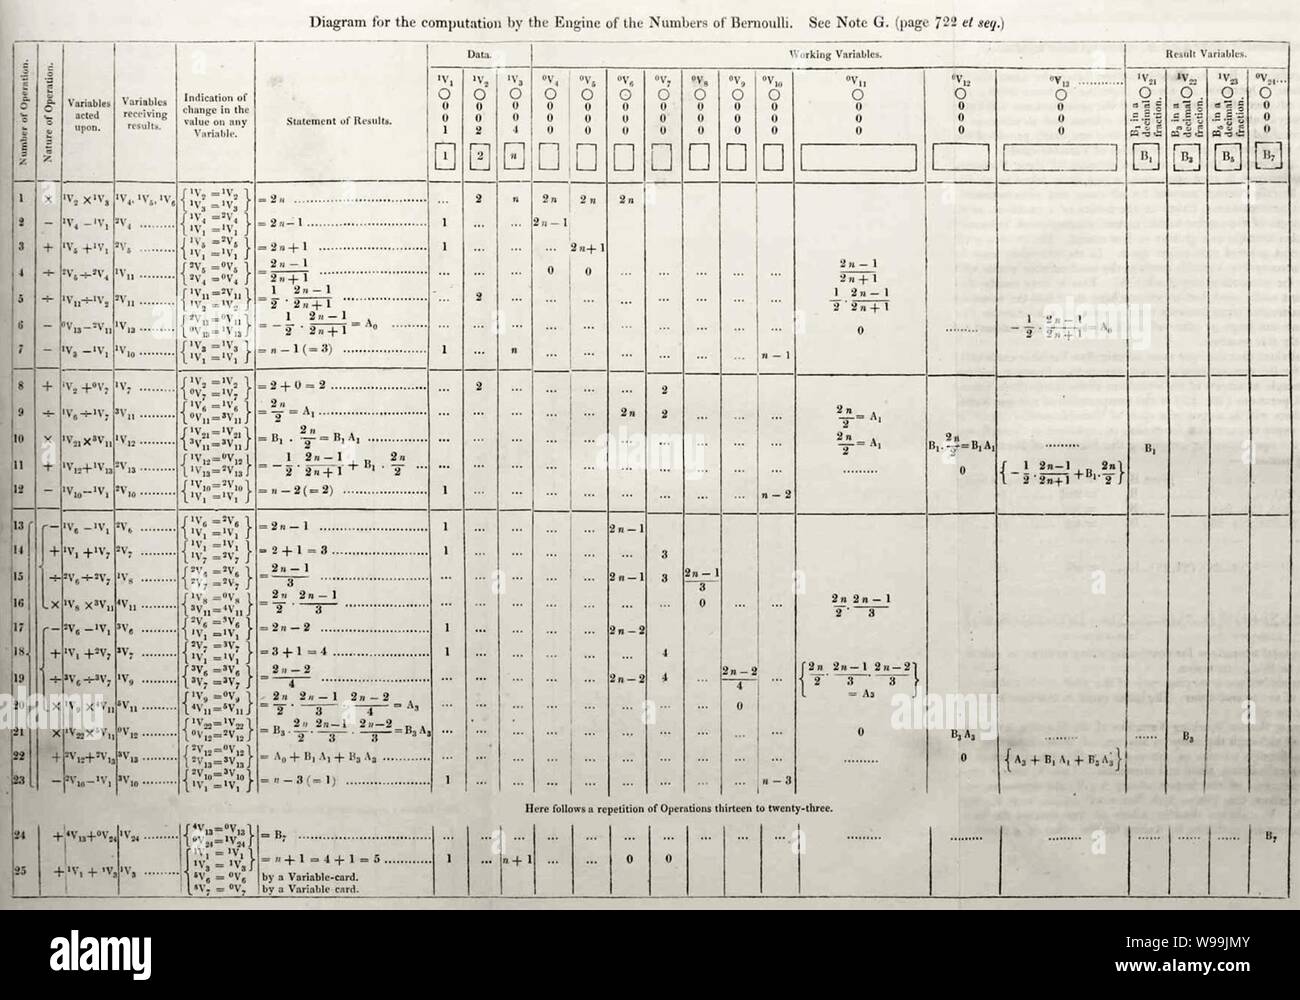 Diagram for the computation by the Engine of the Numbers of Bernoulli. See Note G. (page 722 et seq.)
Data. Working Variables. Result Variables.
Number of Operation. Nature of Operation. Variables acted upon. Variables receiving results. Indication of change in the value on any Variable. Statement of Results.
¹V₁ ¹V₂ ¹V₃ ⁰V₄ ⁰V₅ ⁰V₆ ⁰V₇ ⁰V₈ ⁰V₉ ⁰V₁₀ ⁰V₁₁ ⁰V₁₂ ⁰V₁₃ ............ ¹V₂₁ ¹V₂₂ ¹V₂₃ ⁰V₂₄...
○ ○ ○ ○ ○ ○ ○ ○ ○ ○ ○ ○ ○ ○ ○ ○ ○
0 0 0 0 0 0 0 0 0 0 0 0 0 B₁ in a decimal fraction. B₃ in a decimal fraction. B₅ in a decimal fraction. 0
0 0 0 0 0 0 0 0 0 0 0 0 0 0
1 2 4 0 0 0 0 0 0 0 0 0 0 0
1 2 n B₁ B₃ B₅ B₇
1 × ¹V₂ × ¹V₃ ¹V₄, ¹V₅, ¹V₆ {¹V₂ = ¹V₂ ¹V₃ = ¹V₃} = 2n ... 2 n 2n 2n 2n
2 − ¹V₄ − ¹V₁ ²V₄ {¹V₄ = ²V₄ ¹V₁ = ¹V₁} = 2n − 1 1 ... ... 2n − 1
3 + ¹V₅ + ¹V₁ ²V₅ {¹V₅ = ²V₅ ¹V₁ = ¹V₁} = 2n + 1 1 ... ... ... 2n + 1
4 ÷ ²V₅ ÷ ²V₄ ¹V₁₁ {²V₅ = ⁰V₅ ²V₄ = ⁰V₄} = (2n − 1)/(2n + 1) ... ... ... 0 0 ... ... ... ... ... (2n − 1)/(2n + 1)
5 ÷ ¹V₁₁ ÷ ¹V₂ ²V₁₁ {¹V₁₁ = ²V₁₁ ¹V₂ = ¹V₂} = 1/2 · (2n − 1)/(2n + 1) ... 2 ... ... ... ... ... ... ... ... 1/2 · (2n − 1)/(2n + 1)
6 − ⁰V₁₃ − ²V₁₁ ¹V₁₃ {²V₁₁ = ⁰V₁₁ ⁰V₁₃ = ¹V₁₃} = − 1/2 · (2n − 1)/(2n + 1) = A₀ ... ... ... ... ... ... ... ... ... ... 0 ......... − 1/2 · (2n − 1)/(2n + 1) = A₀
7 − ¹V₃ − ¹V₁ ¹V₁₀ {¹V₃ = ¹V₃ ¹V₁ = ¹V₁} = n − 1 (= 3) 1 ... n ... ... ... ... ... ... n − 1
8 + ¹V₂ + ⁰V₇ ¹V₇ {¹V₂ = ¹V₂ ⁰V₇ = ¹V₇} = 2 + 0 = 2 ... 2 ... ... ... ... 2
9 ÷ ¹V₆ ÷ ¹V₇ ³V₁₁ {¹V₆ = ¹V₆ ⁰V₁₁ = ³V₁₁} = 2n/2 = A₁ ... ... ... ... ... 2n 2 ... ... ... 2n/2 = A₁
10 × ¹V₂₁ × ³V₁₁ ¹V₁₂ {¹V₂₁ = ¹V₂₁ ³V₁₁ = ³V₁₁} = B₁ · 2n/2 = B₁ A₁ ... ... ... ... ... ... ... ... ... ... 2n/2 = A₁ B₁ · 2n/2 = B₁ A₁ ......... B₁
11 + ¹V₁₂ + ¹V₁₃ ²V₁₃ {¹V₁₂ = ⁰V₁₂ ¹V₁₃ = ²V₁₃} = − 1/2 · (2n − 1)/(2n + 1) + B₁ · 2n/2 ... ... ... ... ... ... ... ... ... ... ......... 0 {− 1/2 · (2n − 1)/(2n + 1) + B₁ · 2n/2}
12 − ¹V₁₀ − ¹V₁ ²V₁₀ {¹V₁₀ = ²V₁₀ ¹V₁ = ¹V₁} = n − 2 (= 2) 1 ... ... ... ... ... ... ... ... n − 2
13 − ¹V₆ − ¹V₁ ²V₆ {¹V₆ = ²V₆ ¹V₁ = ¹V₁} = 2n − 1 1 ... ... ... ... 2n − 1
14 + ¹V₁ + ¹V₇ ²V₇ {¹V₁ = ¹V₁ ¹V₇ = ²V₇} = 2 + 1 = 3 1 ... ... ... ... ... 3
15 ÷ ²V₆ ÷ ²V₇ ¹V₈ {²V₆ = ²V₆ ²V₇ = ²V₇} = (2n − 1)/3 ... ... ... ... ... 2n − 1 3 (2n − 1)/3
16 × ¹V₈ × ³V₁₁ ⁴V₁₁ {¹V₈ = ⁰V₈ ³V₁₁ = ⁴V₁₁} = 2n/2 · (2n − 1)/3 ... ... ... ... ... ... ... 0 ... ... 2n/2 · (2n − 1)/3
17 − ²V₆ − ¹V₁ ³V₆ {²V₆ = ³V₆ ¹V₁ = ¹V₁} = 2n − 2 1 ... ... ... ... 2n − 2
18 + ¹V₁ + ²V₇ ³V₇ {²V₇ = ³V₇ ¹V₁ = ¹V₁} = 3 + 1 = 4 1 ... ... ... ... ... 4
19 ÷ ³V₆ ÷ ³V₇ ¹V₉ {³V₆ = ³V₆ ³V₇ = ³V₇} = (2n − 2)/4 ... ... ... ... ... 2n − 2 4 ... (2n − 2)/4 ... {2n/2 · (2n − 1)/3 · (2n − 2)/3} = A₃
20 × ¹V₉ × ⁴V₁₁ ⁵V₁₁ {¹V₉ = ⁰V₉ ⁴V₁₁ = ⁵V₁₁} = 2n/2 · (2n − 1)/3 · (2n − 2)/4 = A₃ ... ... ... ... ... ... ... ... 0
21 × ¹V₂₂ × ⁵V₁₁ ⁰V₁₂ {¹V₂₂ = ¹V₂₂ ⁰V₁₂ = ²V₁₂} = B₃ · 2n/2 · (2n − 1)/3 · (2n − 2)/3 = B₃ A₃ ... ... ... ... ... ... ... ... ... ... 0 B₃ A₃ ......... ...... B₃
22 + ²V₁₂ + ²V₁₃ ³V₁₃ {²V₁₂ = ⁰V₁₂ ²V₁₃ = ³V₁₃} = A₀ + B₁ A₁ + B₃ A₃ ... ... ... ... ... ... ... ... ... ... ......... 0 {A₃ + B₁ A₁ + B₃ A₃}
23 − ²V₁₀ − ¹V₁ ³V₁₀ {²V₁₀ = ³V₁₀ ¹V₁ = ¹V₁} = n − 3 (= 1) 1 ... ... ... ... ... ... ... ... n − 3
Here follows a repetition of Operations thirteen to twenty-three.
24 + ⁴V₁₃ + ⁰V₂₄ ¹V₂₄ {⁴V₁₃ = ⁰V₁₃ ⁰V₂₄ = ¹V₂₄} = B₇ ... ... ... ... ... ... ... ... ... ... ......... ......... ......... ...... ... ... B₇
25 + ¹V₁ + ¹V₃ ¹V₃ {¹V₁ = ¹V₁ ¹V₃ = ¹V₃ ⁵V₆ = ⁰V₆ ⁵V₇ = ⁰V₇} = n + 1 = 4 + 1 = 5 1 ... n + 1 ... ... 0 0
by a Variable-card.
by a Variable card.
alamy
Image ID: W99JMY
www.alamy.com